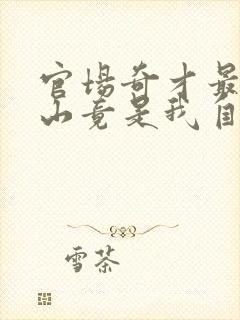 官场奇才最
山竟是我自
雪茶